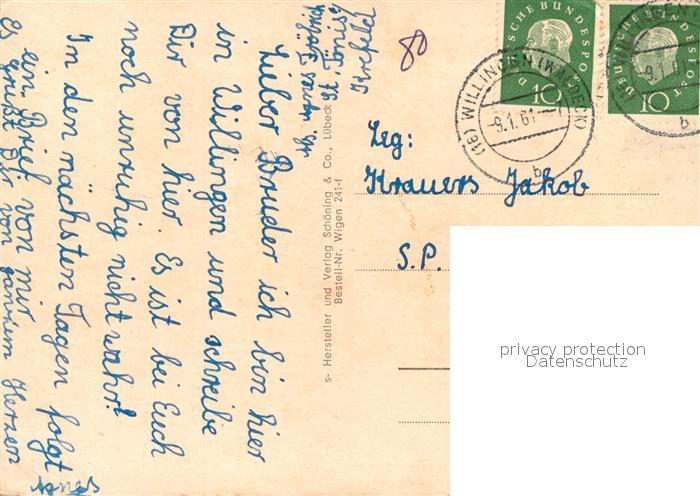 Lieber Bruder ich bin hier
in Willingen und schreibe
Dir von hier. Es ist bei Euch
noch unruhig nicht wahr?
In den nächsten Tagen folgt
ein Brief von mir
Es grüßt Dir von ganzem Herzen
80
DEUTSCHE BUNDESPOST
10
DEUTSCHE BUNDESPOST
10
(16) WILLINGEN (WALDECK)
-9.1.61
b
-9.1.6
b
Leg:
Krauers Jakob
S.P.
s- Hersteller und Verlag Schöning & Co., Lübeck
Bestell-Nr. Wigen 241-f
privacy protection
Datenschutz